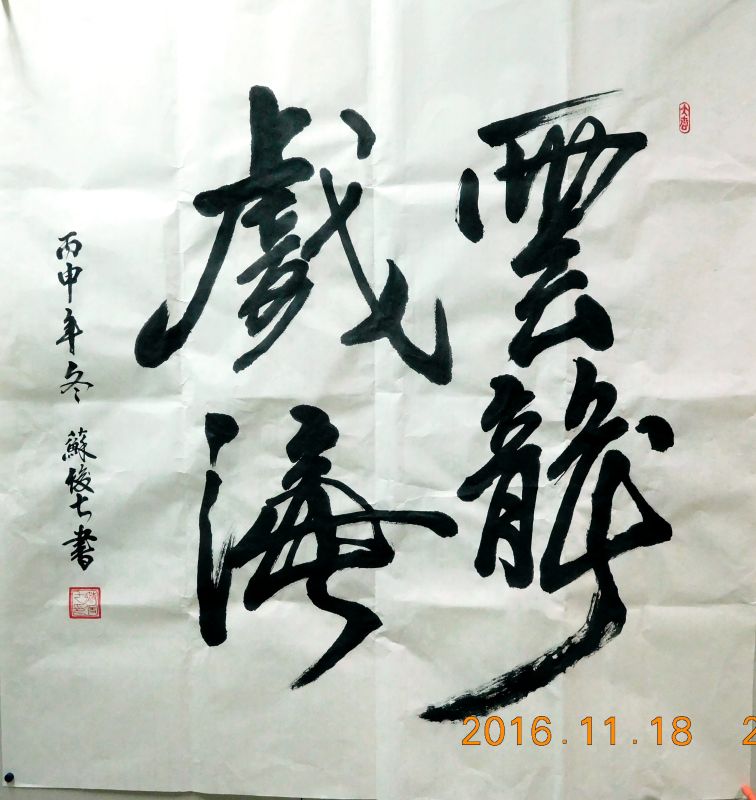 雲龍
戲海
丙申年冬 蘇俊七書
2016.11.18